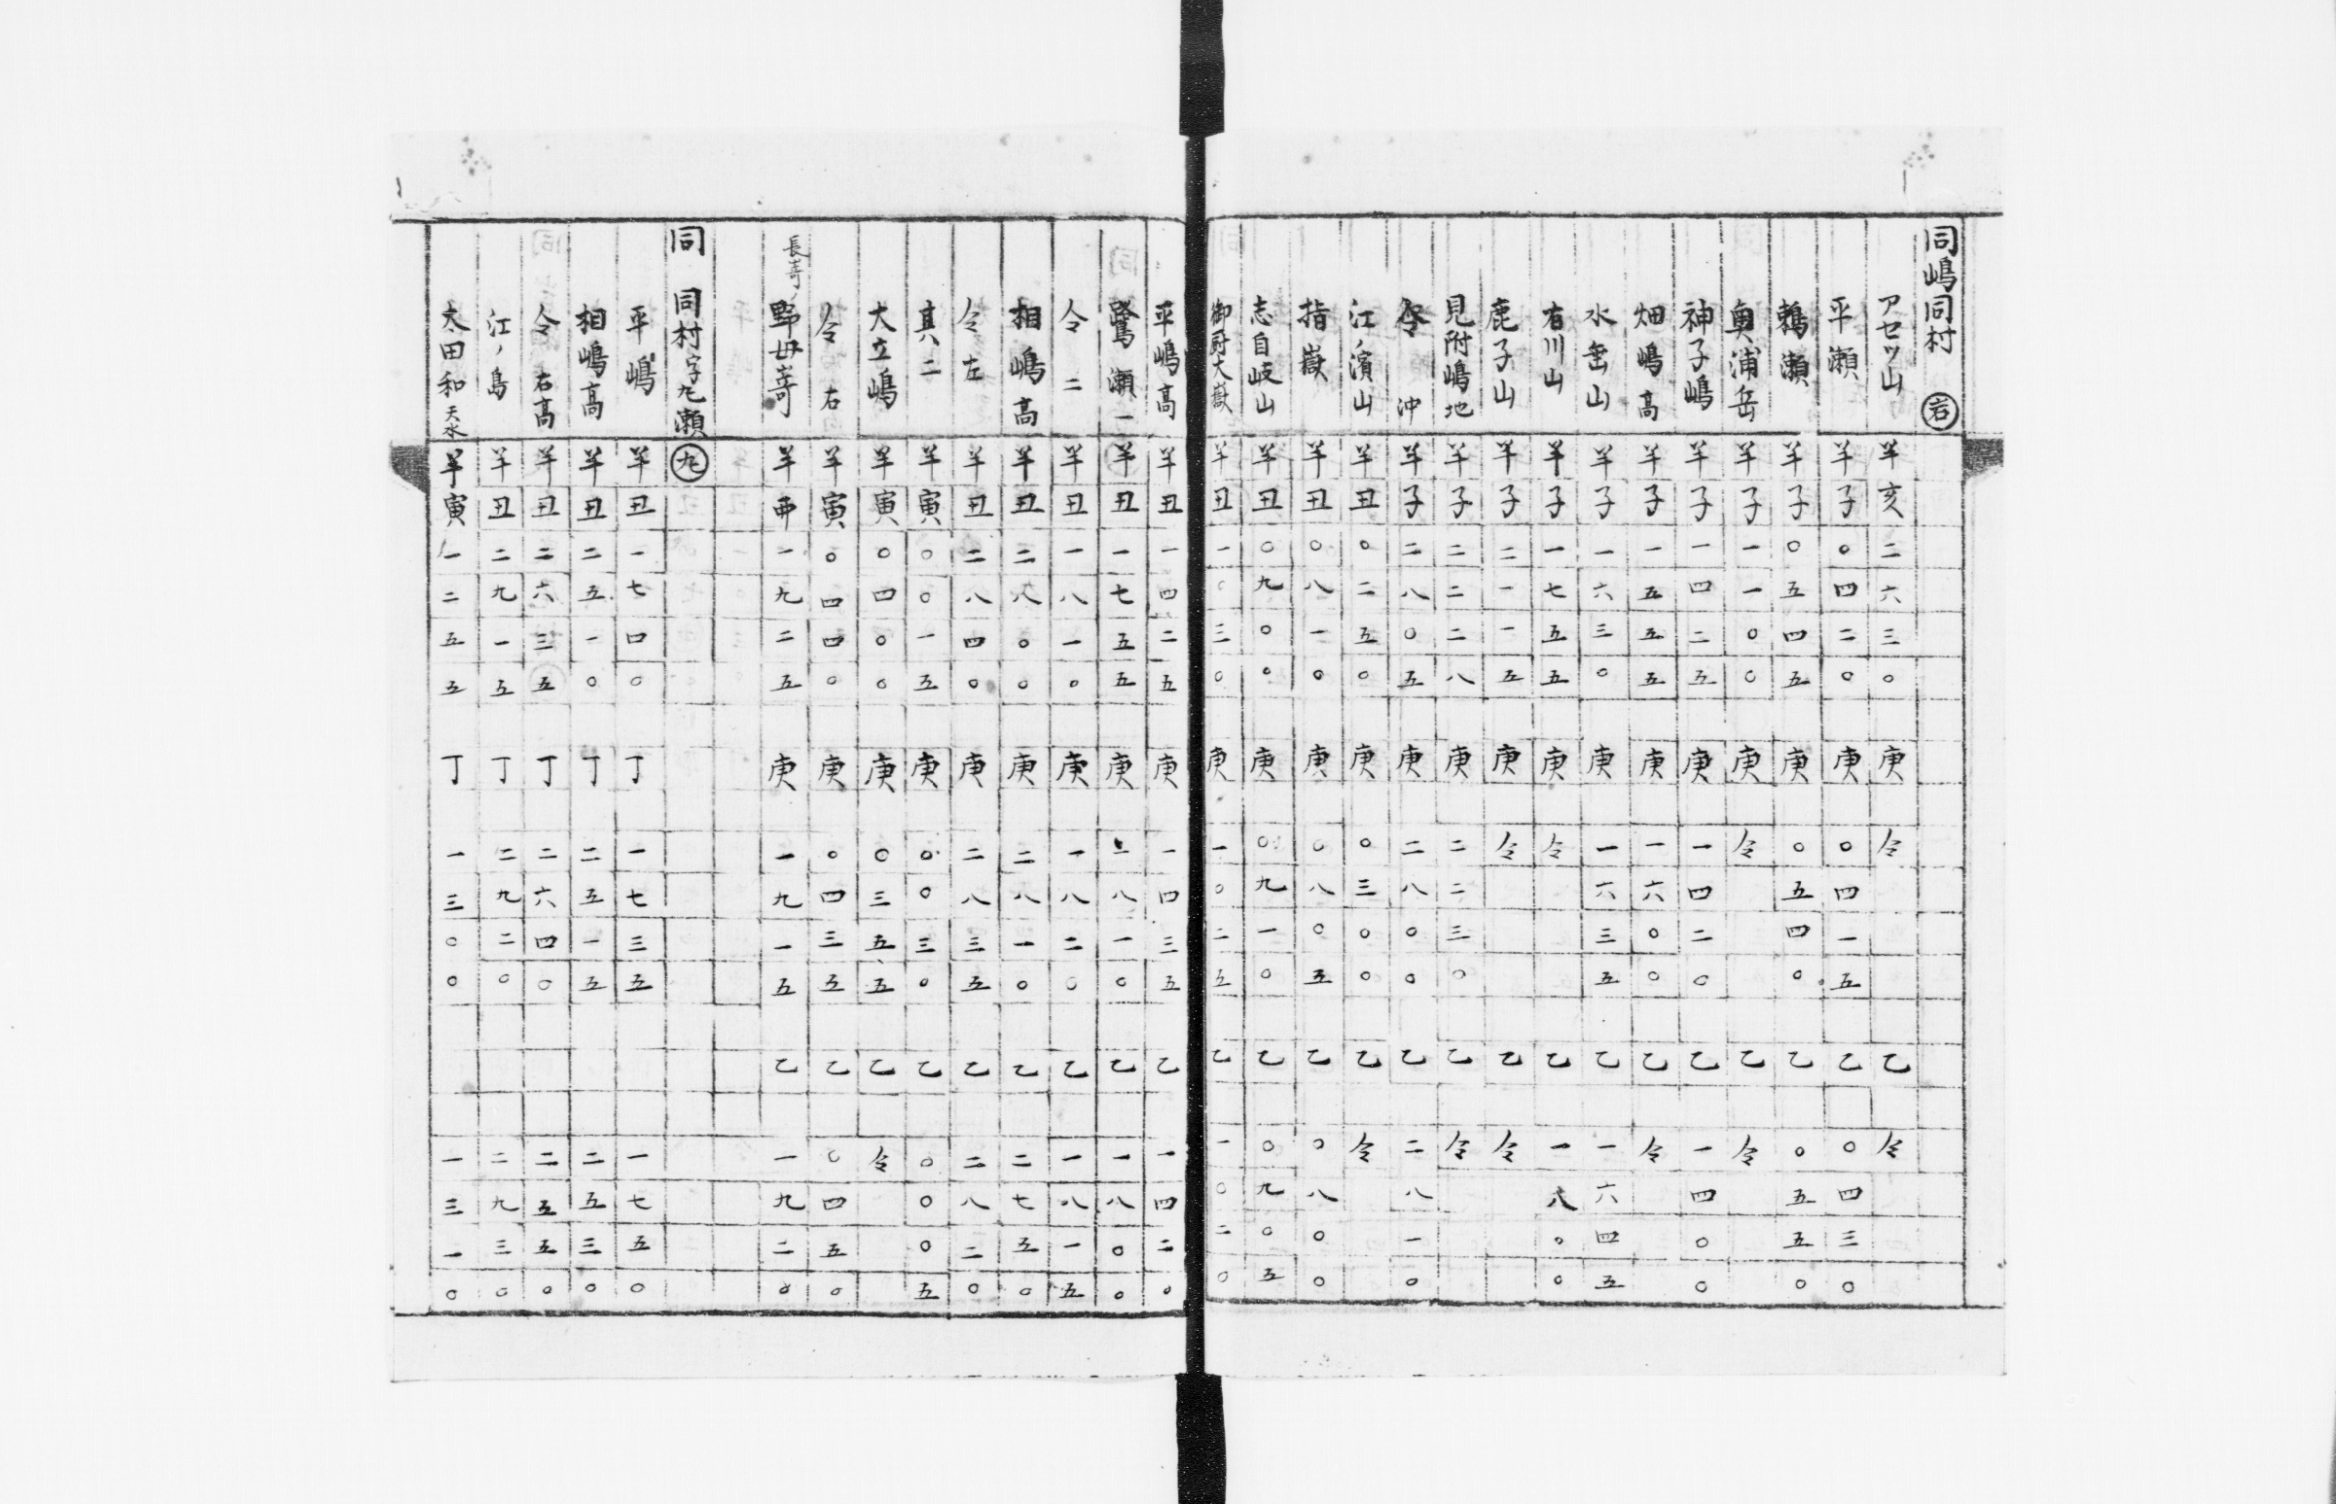 同嶋同村 岩
アセツ山 羊亥二六三〇 庚 仝 乙 仝
平瀬 羊子〇四二〇 庚 〇四一五 乙 〇四三〇
鵜瀬 羊子〇五四五 庚 〇五四〇 乙 〇五五〇
奥浦岳 羊子一一〇〇 庚 仝 乙 仝
神子嶋 羊子一四二五 庚 一四二〇 乙 一四〇〇
畑嶋高 羊子一五五五 庚 一六〇〇 乙 仝
水垂山 羊子一六三〇 庚 一六三五 乙 一六四五
有川山 羊子一七五五 庚 仝 乙 一八〇〇
鹿子山 羊子二一一五 庚 仝 乙 仝
見附嶋地 羊子二二二八 庚 二二三〇 乙 仝
仝 沖 羊子二八〇五 庚 二八〇〇 乙 二八一〇
江ノ濱山 羊丑〇二五〇 庚 〇三〇〇 乙 仝
指嶽 羊丑〇八一〇 庚 〇八〇五 乙 〇八〇〇
志自岐山 羊丑〇九〇〇 庚 〇九一〇 乙 〇九〇五
御厨大嶽 羊丑一〇三〇 庚 一〇二五 乙 一〇二〇
平嶋高 羊丑一四二五 庚 一四三五 乙 一四二〇
鷺瀬一 羊丑一七五五 庚 一八一〇 乙 一八〇〇
仝 二 羊丑一八一〇 庚 一八二〇 乙 一八一五
相嶋高 羊丑二八〇〇 庚 二八一〇 乙 二七五〇
仝 左 羊丑二八四〇 庚 二八三五 乙 二八二〇
其六二 羊寅〇〇一五 庚 〇〇三〇 乙 〇〇〇五
大立嶋 羊寅〇四〇〇 庚 〇三五五 乙 仝
仝 右 羊寅〇四四〇 庚 〇四三五 乙 〇四五〇
長嵜 野母嵜 羊酉一九二五 庚 一九一五 乙 一九二〇
同 同村字九瀬 九
平嶋 羊丑一七四〇 丁 一七三五 一七五〇
相嶋高 羊丑二五一〇 丁 二五一五 二五三〇
仝 右高 羊丑二六三五 丁 二六四〇 二五五〇
江ノ島 羊丑二九一五 丁 二九二〇 二九三〇
太田和 天水 羊寅一二五五 丁 一三〇〇 一三一〇